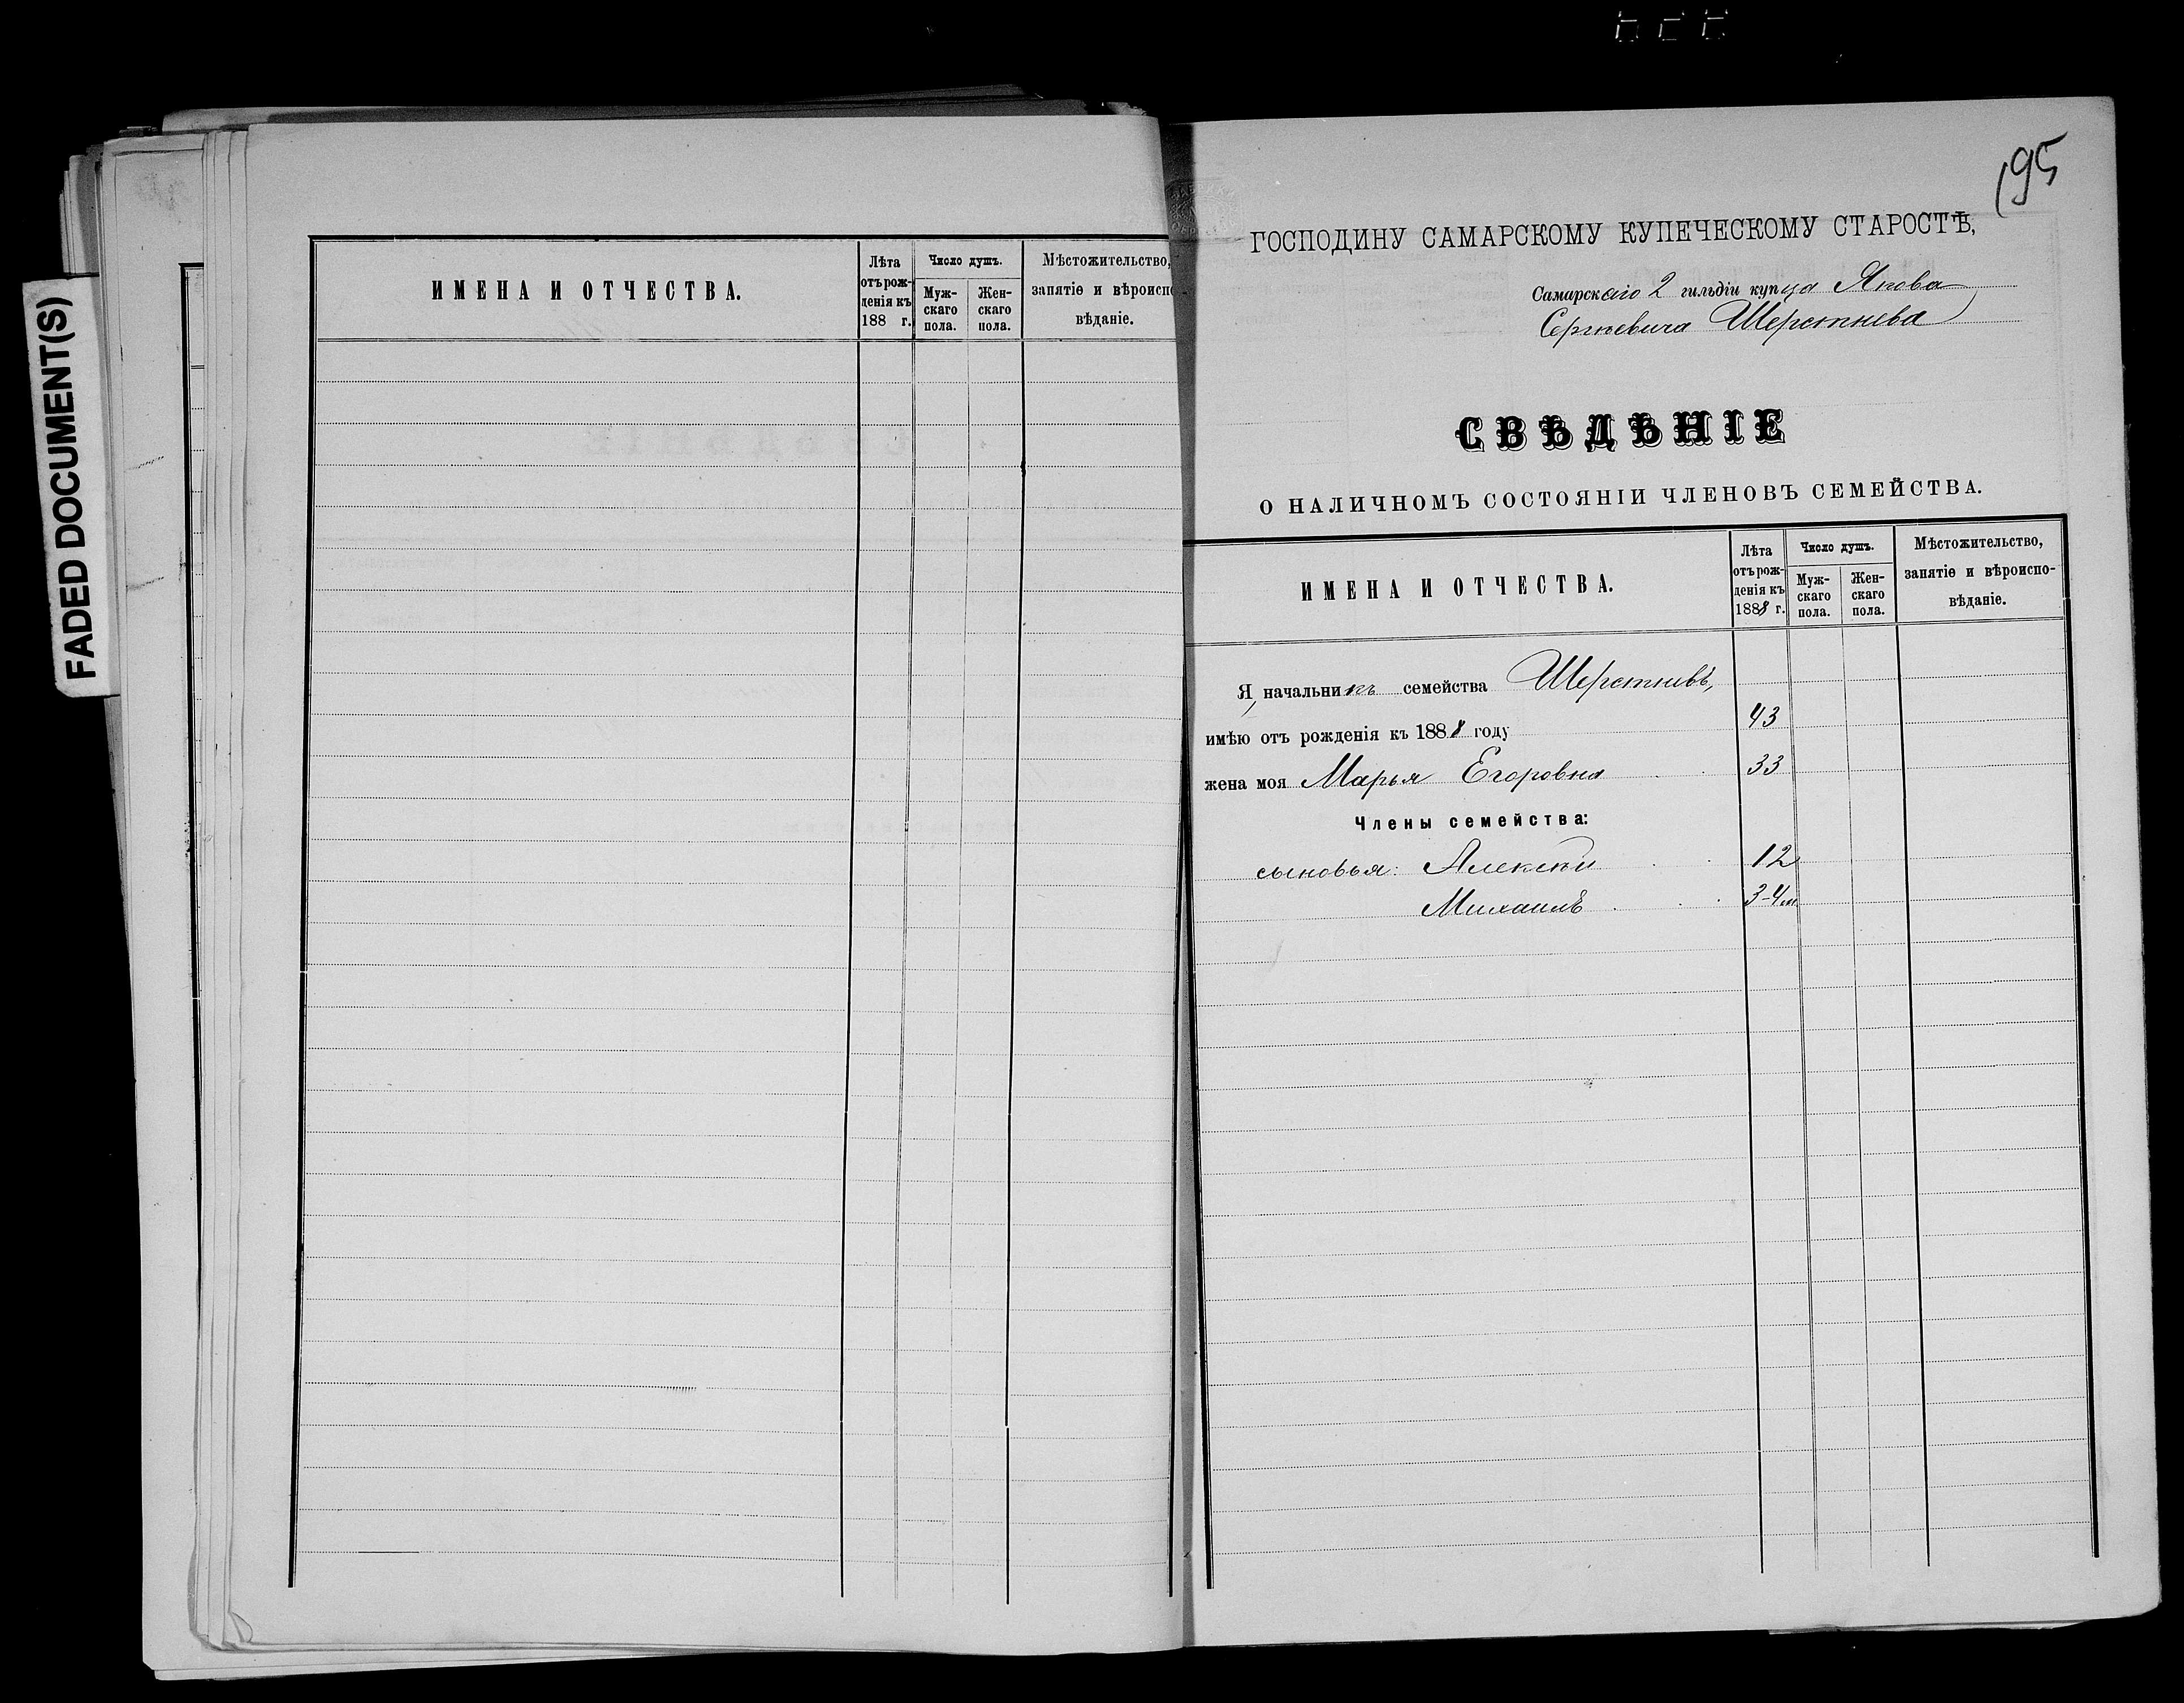 FADED DOCUMENT(S)
ИМЕНА И ОТЧЕСТВА.
Лѣта отъ рожденія къ 188 г.
Число душъ.
Мужскаго пола.
Женскаго пола.
Мѣстожительство,
занятіе и вѣроиспо
вѣданіе.
195
ГОСПОДИНУ САМАРСКОМУ КУПЕЧЕСКОМУ СТАРОСТѢ,
Самарскаго 2 гильдіи купца Якова
Сергѣевича Шерстнева
СВѢДѢНІЕ
О НАЛИЧНОМЪ СОСТОЯНІИ ЧЛЕНОВЪ СЕМЕЙСТВА.
ИМЕНА И ОТЧЕСТВА.
Лѣта
отъ рож-
денія къ
1888 г.
Число душъ.
Муж-
скаго
пола.
Жен-
скаго
пола.
Мѣстожительство,
занятіе и вѣроиспо-
вѣданіе.
Я, начальникъ семейства Шерстневъ,
имѣю отъ рожденія къ 1888 году 43
жена моя Марья Егоровна 33
Члены семейства:
сыновья: Алексѣй 12
Михаилъ 3-4 м.